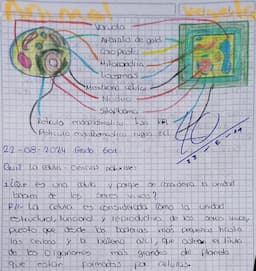 Animal
Vacuola
Aparato de golgi
Cloroplasto
Mitocondria
Lisosomas
Membrana celular
Nucleo
citoplasma
Reticulo endoplasmatico liso REL
Reticulo endoplasmatico rugoso REL
22-08-2024 Grado 601
Quiz la celula - ciencias naturales
1 ¿Que es una celula y porque se considera la unidad
basica de los seres vivos?
R/- La celula es considerada como la unidad
estructural, funcional y reproductiva de los seres vivos,
puesto que desde las bacterias mas pequeñas hasta
las ceibas y la ballena azul, que ostentan el titulo
de los organismos mas grandes del planeta
que estan formados por celulas.